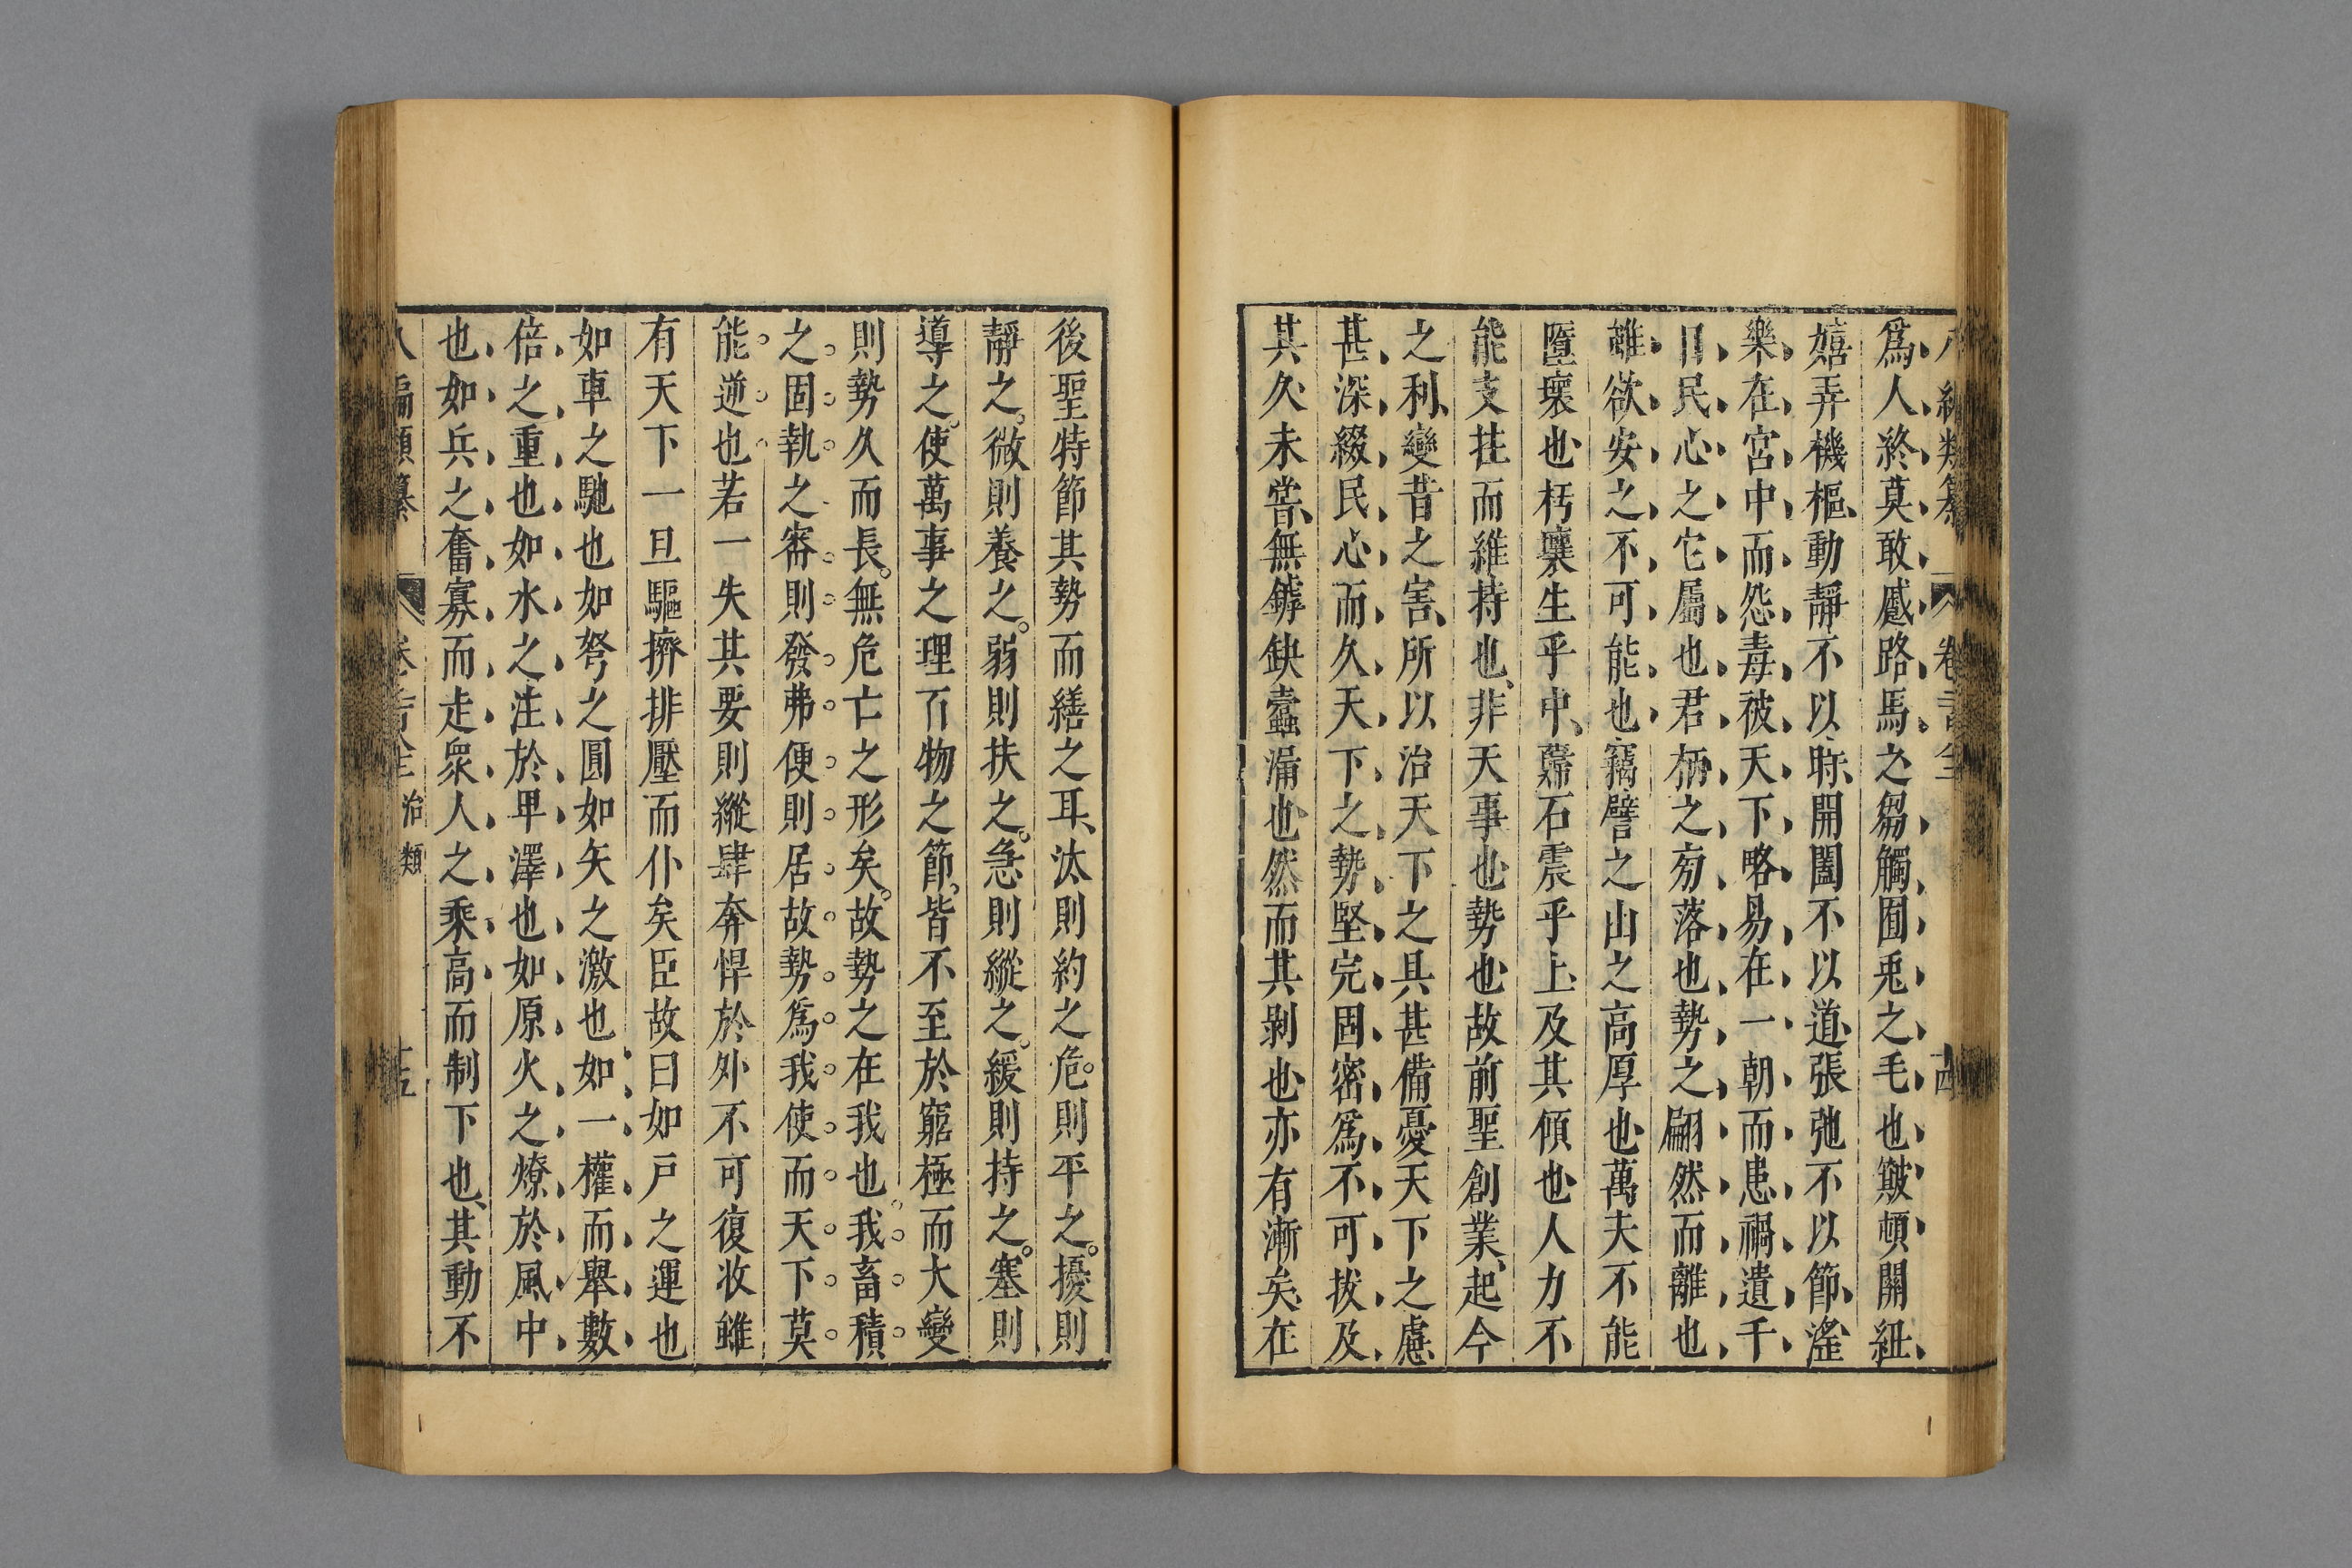 爲人終莫敢蹙路馬之芻觸囿兎之毛也黻頓關紐
嬉弄機樞動靜不以時開闔不以道張弛不以節滛
樂在宮中而怨毒被天下略易在一朝而患禍遺千
日民心之它屬也君柄之旁落也勢之翩然而離也
雖欲安之不可能也竊譬之山之高厚也萬夫不能
墮壞也朽壤生乎中蘬石震乎上及其傾也人力不
能支拄而維持也非天事也勢也故前聖創業起今
之利變昔之害所以治天下之具甚備憂天下之慮
甚深綴民心而久天下之勢堅完固密爲不可拔及
其久未甞無罅缺蠧漏也然而其剥也亦有漸矣在
後聖特節其勢而繕之耳汰則約之危則平之擾則
靜之微則養之弱則扶之急則縱之緩則持之塞則
導之使萬事之理百物之節皆不至於窮極而大變
則勢久而長無危亡之形矣故勢之在我也我畜積
之固執之審則發弗便則居故勢爲我使而天下莫
能逆也若一失其要則縱肆奔悍於外不可復收雖
有天下一旦驅擠排壓而仆矣臣故曰如戸之運也
如車之馳也如弩之圓如矢之激也如一權而舉數
倍之重也如水之注於卑澤也如原火之燎於風中
也如兵之奮寡而走衆人之乘高而制下也其動不
治類